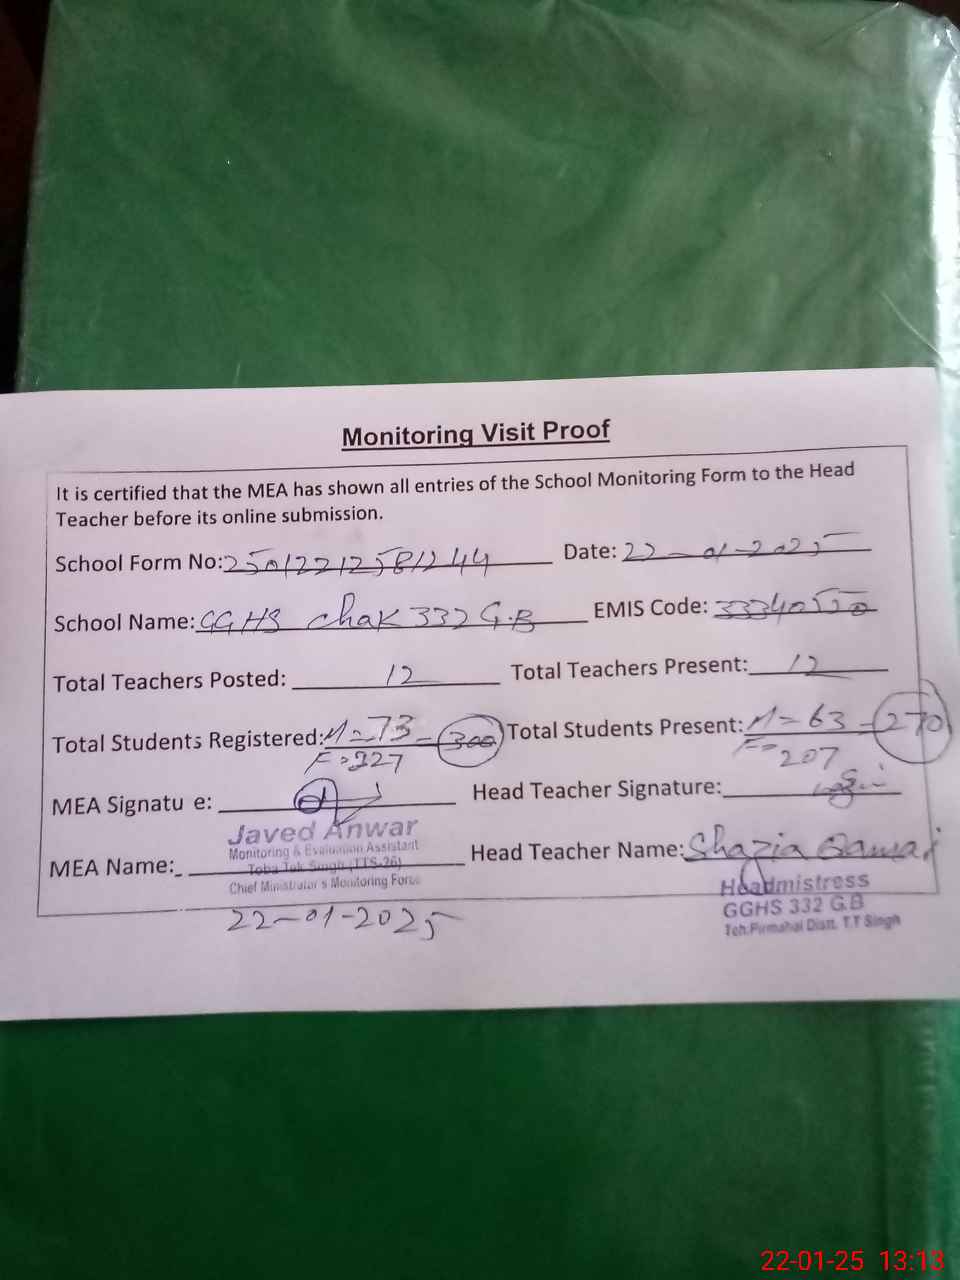 Monitoring Visit Proof
It is certified that the MEA has shown all entries of the School Monitoring Form to the Head
Teacher before its online submission.
School Form No: 25012212581244 Date: 22-01-2025
School Name: GGHS Chak 332 G.B EMIS Code: 33340550
Total Teachers Posted: 12 Total Teachers Present: 12
Total Students Registered: M=73 - 300 Total Students Present: M=63 - 270
F=227 F=207
MEA Signatu e: Head Teacher Signature:
Javed Anwar
Monitoring & Evaluation Assistant
MEA Name: Toba Tek Singh (TTS-26) Head Teacher Name: Shazia
Chief Ministrator's Monitoring Force
Headmistress
22-01-2025 GGHS 332 G.B
Teh. Pirmahal Distt. T.T Singh
22-01-25 13:13